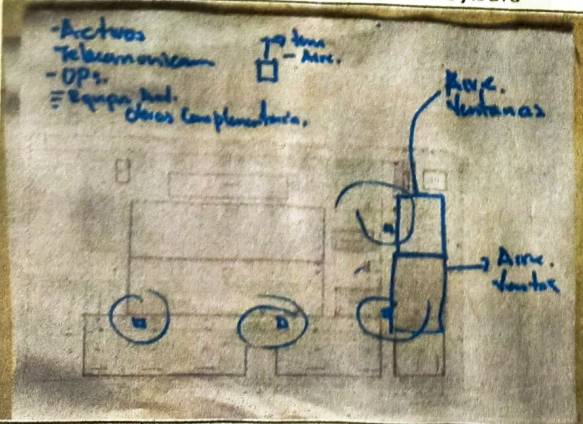 -Activos
Telecomunicacion
-OPs.
Equipos Aud.
Obras Complementaria.
- Aire.
Aire.
Ventanas
Aire.